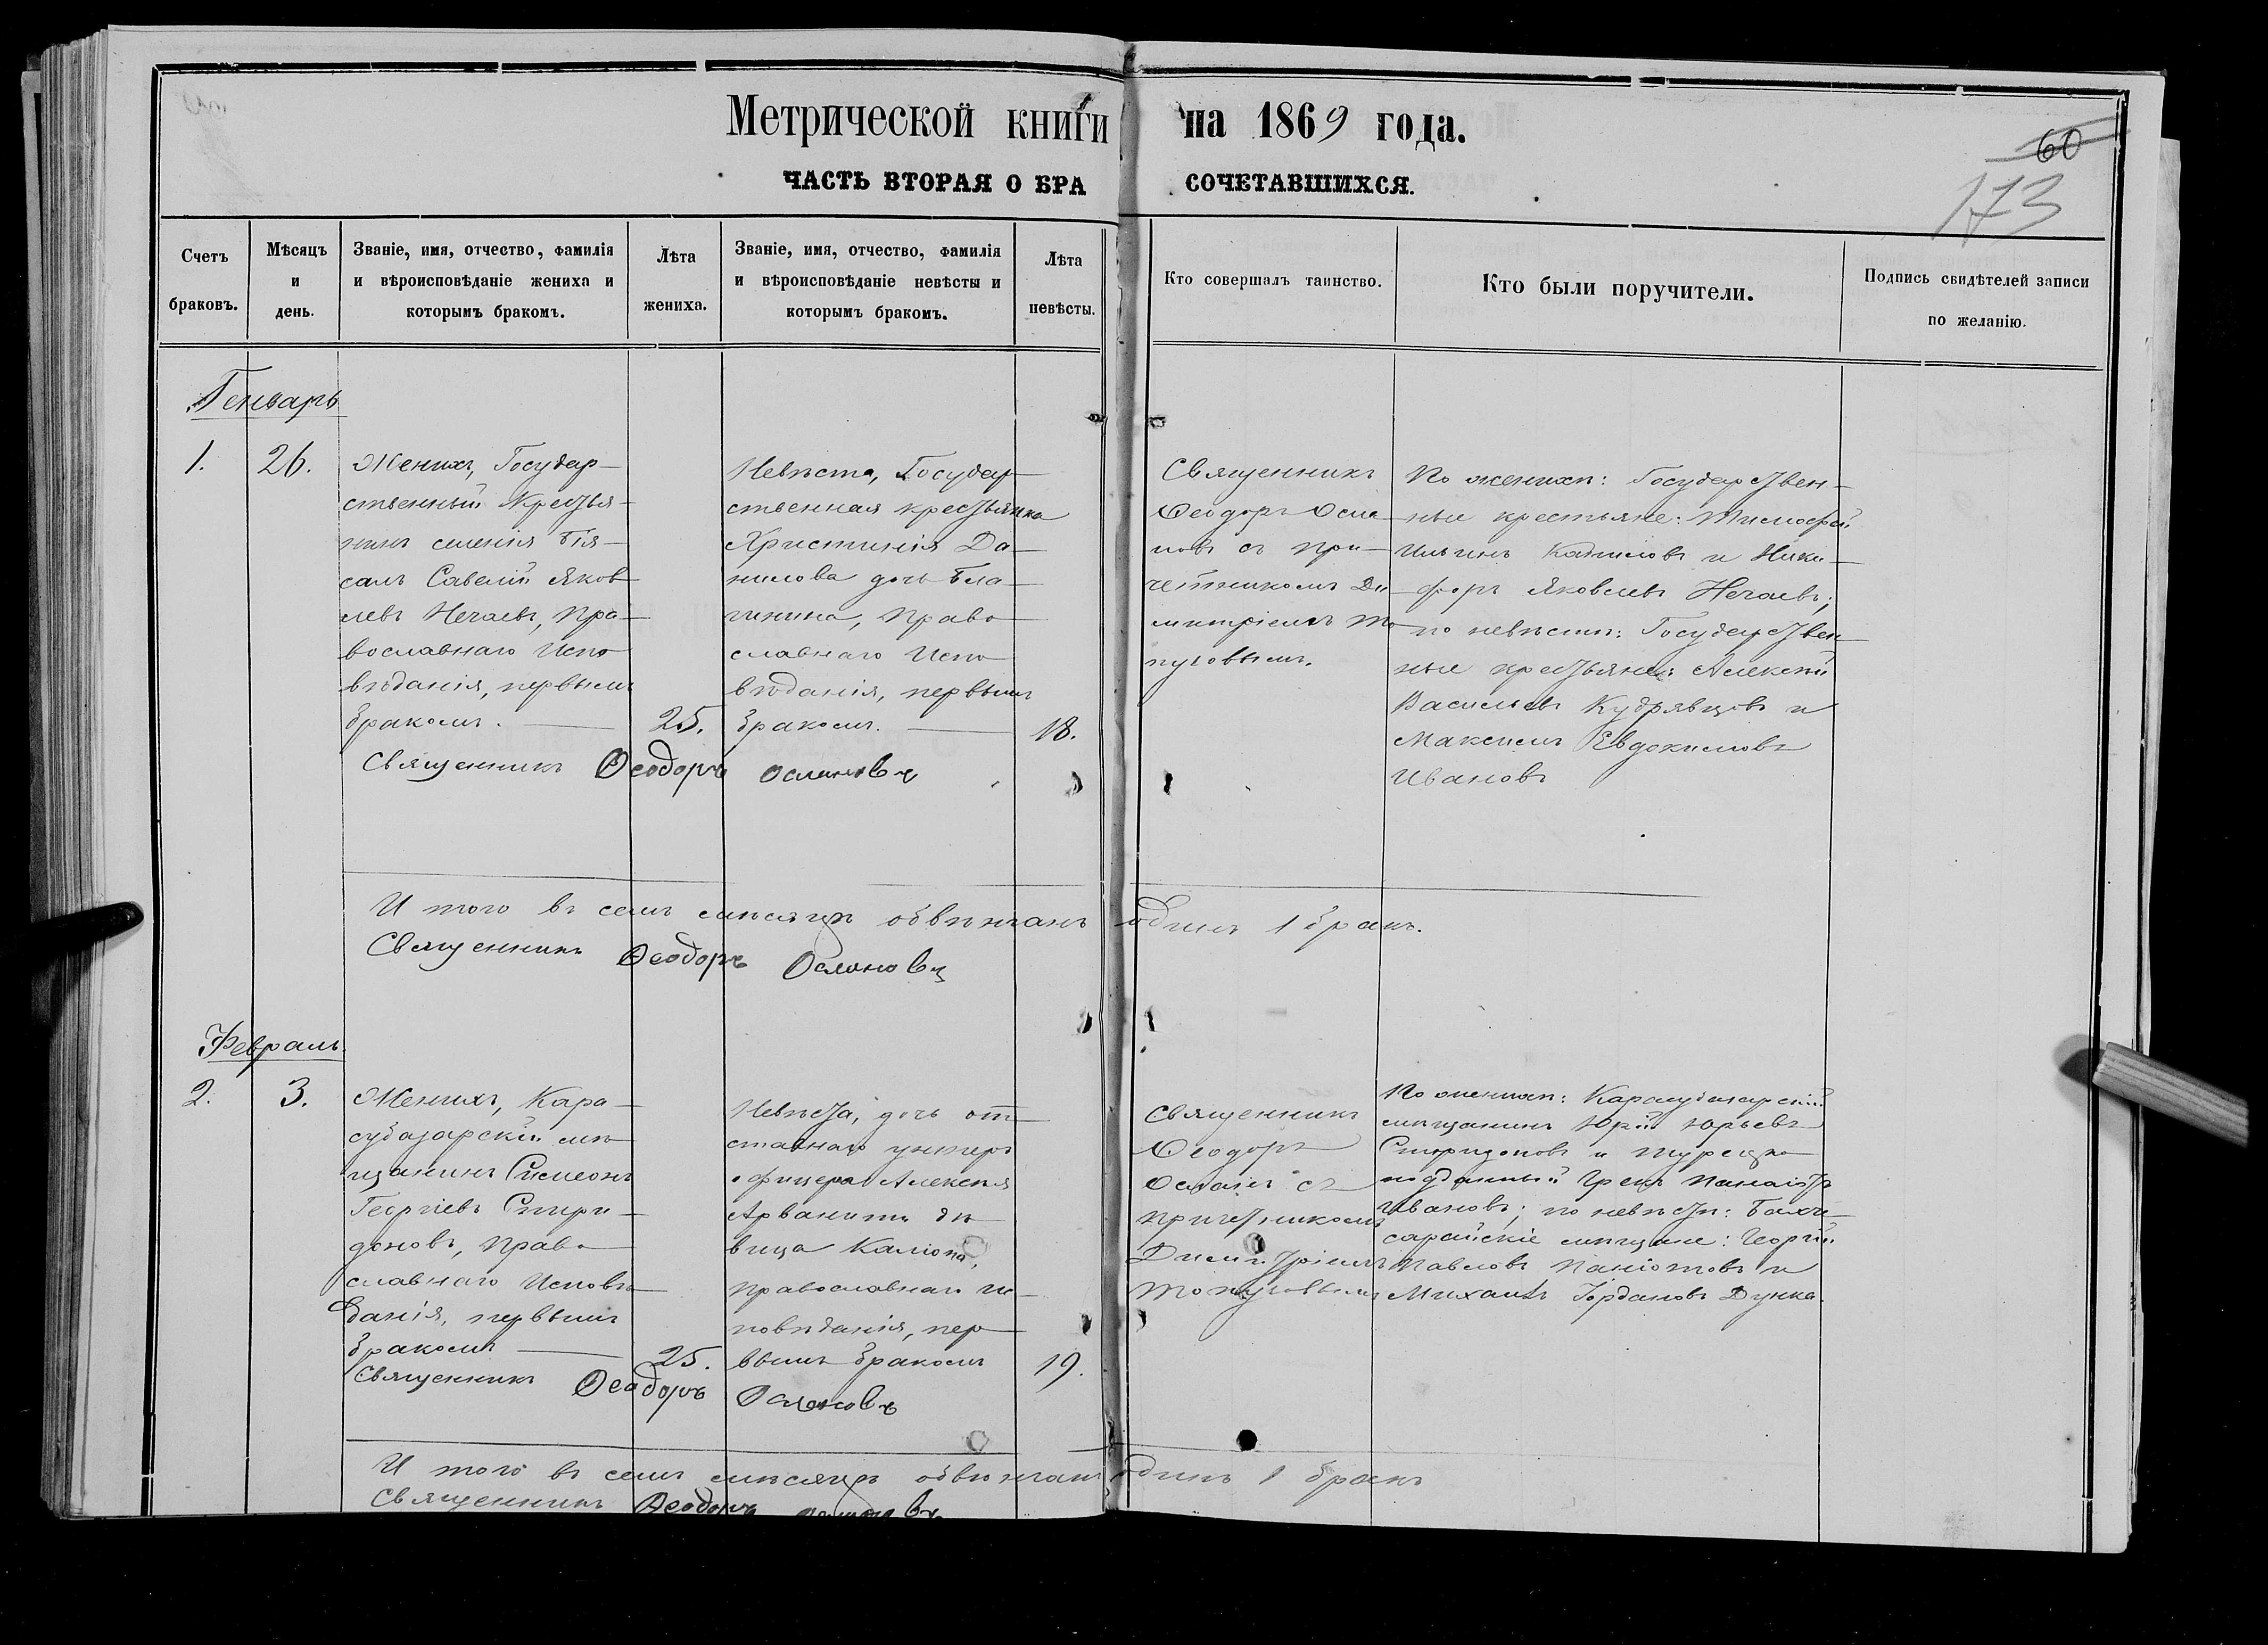 Метрической книги на 1869 года.
60
173
ЧАСТЬ ВТОРАЯ О БРА СОЧЕТАВШИХСЯ.
Счетъ браковъ.
Мѣсяцъ и день.
Званіе, имя, отчество, фамилія
и вѣроисповѣданіе жениха и
которымъ бракомъ.
Лѣта жениха.
Званіе, имя, отчество, фамилія
и вѣроисповѣданіе невѣсты и
которымъ бракомъ.
Лѣта невѣсты.
Кто совершалъ таинство.
Кто были поручители.
Подпись свидѣтелей записи
по желанію.
Генварь
1.
26.
Женихъ, Государ-
ственный Крестья-
нинъ селенія Бія-
салъ Савелій Яков
левъ Нечаевъ, Пра-
вославнаго Испо
вѣданія, первымъ
бракомъ.
25.
Невѣста, Государ-
ственная крестьянка
Христинія Да-
нилова дочь
Право
славнаго Испо
вѣданія, первымъ
бракомъ.
18.
Священникъ
Ѳеодоръ Осма
новъ съ при-
четникомъ Ди
митріемъ То
пузовымъ.
По женихѣ: Государствен-
ные крестьяне: Тимофей
Ильинъ и Ники-
форъ Яковлевъ Нечаевъ;
по невѣстѣ: Государствен
ные крестьяне: Алексѣй
Васильевъ Кудрявцовъ и
Максимъ Евдокимовъ
Ивановъ
Священникъ Ѳеодоръ Османовъ
И того въ семъ мѣсяцѣ обвѣнчанъ одинъ 1 бракъ.
Священникъ Ѳеодоръ Османовъ
Февраль.
2.
3.
Женихъ, Кара-
субазарскій мѣ
щанинъ Симеонъ
Георгіевъ Спири-
доновъ, Право-
славнаго Исповѣ-
данія, первымъ
бракомъ
25.
Невѣста, дочь от-
ставнаго унтеръ
офицера Алексѣя
Арванити дѣ-
вица Каліопа,
православнаго Ис-
повѣданія, пер-
вымъ бракомъ
19.
Священникъ
Ѳеодоръ
Османъ съ
причетникомъ
Димитріемъ
Топузовымъ
По женихѣ: Карасубазарскій
мѣщанинъ Юрій Юрьевъ
Спиридоновъ и турецко
подданный Грекъ Панаіотъ
Ивановъ; по невѣстѣ: Бахчи-
сарайскіе мѣщане: Георгій
Павловъ Паніотовъ и
Михаилъ Іордановъ Дунка.
Священникъ Ѳеодоръ Османовъ
И того въ семъ мѣсяцѣ обвѣнчанъ одинъ 1 бракъ
Священникъ Ѳеодоръ Османовъ